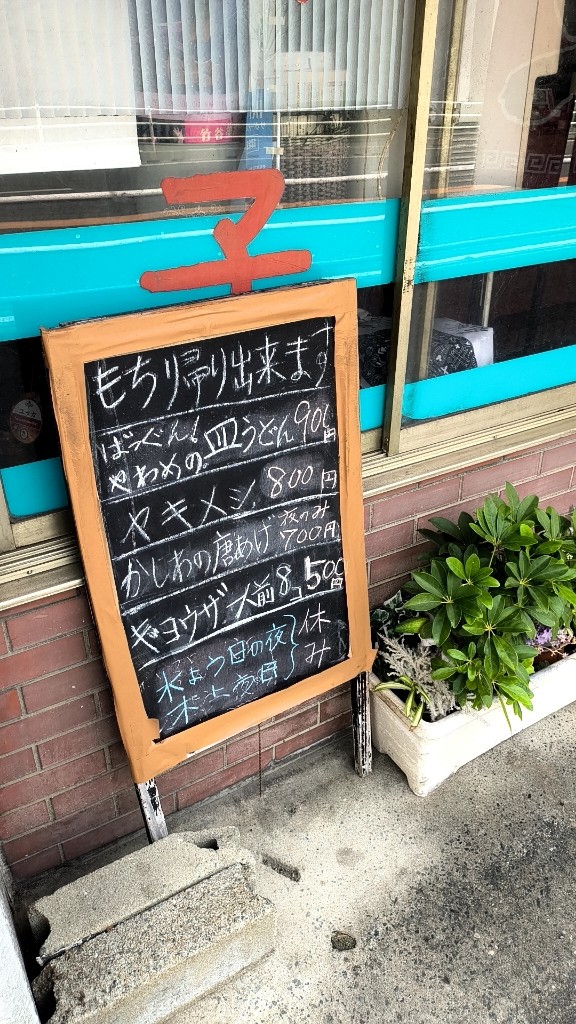 もちり帰り出来ます
ばつぐん!
やわめの
皿うどん 900円
ヤキメシ 800円
かしわの唐あげ 夜のみ 700円
ギョウザ 一人前 8コ 500円
水よう日の夜
休み